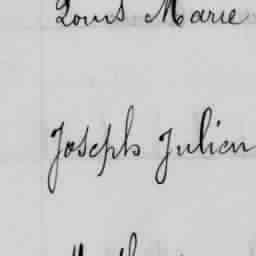 Louis Marie
Joseph Julien